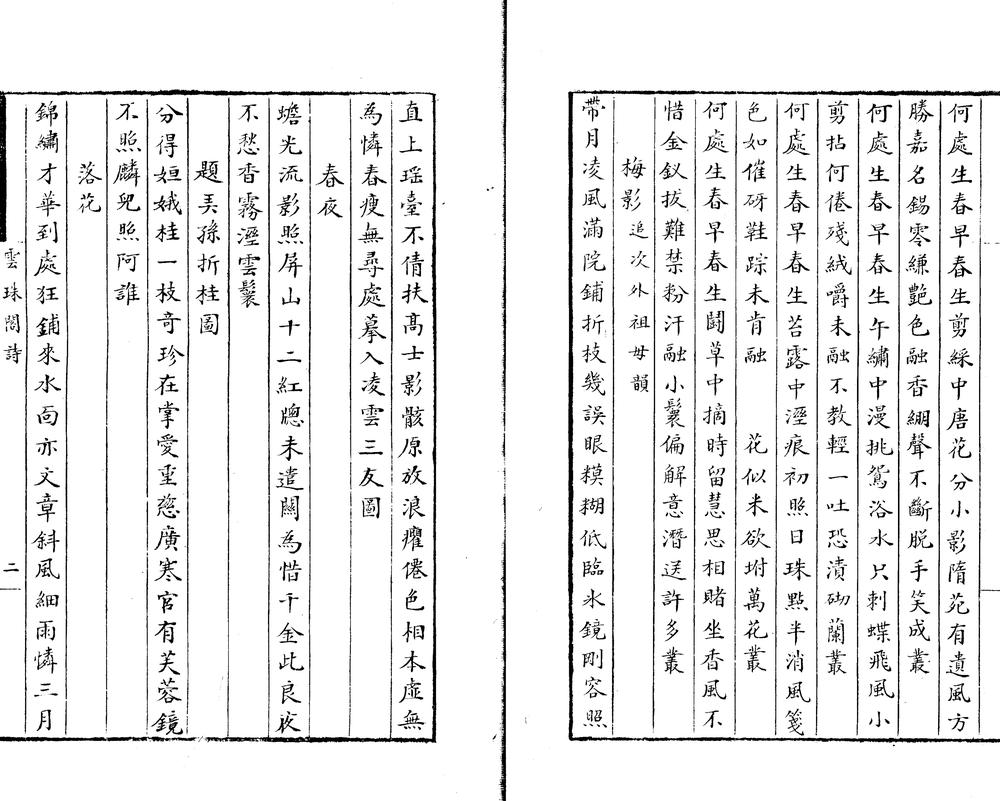 何處生春早春生剪綵中唐花分小影隋苑有遺風方
勝嘉名錫零縑艷色融香綳聲不斷脱手笑成叢
何處生春早春生午繡中漫挑鴛浴水只刺蝶飛風小
剪拈何倦殘絨嚼未融不教輕一吐恐漬砌蘭叢
何處生春早春生苔露中溼痕初照日珠點半消風箋
色如催砑鞋踪未肯融　　花似米欲坿萬花叢
何處生春早春生鬬草中摘時留慧思相賭坐香風不
惜金釵拔難禁粉汗融小鬟偏解意潛送許多叢
梅影追次外祖母韻
帶月凌風滿院鋪折枝幾誤眼糢糊低臨氷鏡剛容照
直上瑶臺不倩扶高士影骸原放浪癯僊色相本虛無
為憐春瘦無尋處摹入凌雲三友圖
春夜
蟾光流影照屏山十二紅牕未遣關為惜千金此良夜
不愁香霧溼雲鬟
題弄孫折桂圖
分得姮娥桂一枝奇珍在掌愛重慈廣寒宮有芙蓉鏡
不照麟兒照阿誰
落花
錦繡才華到處狂鋪來水面亦文章斜風細雨憐三月
雲珠閣詩
二